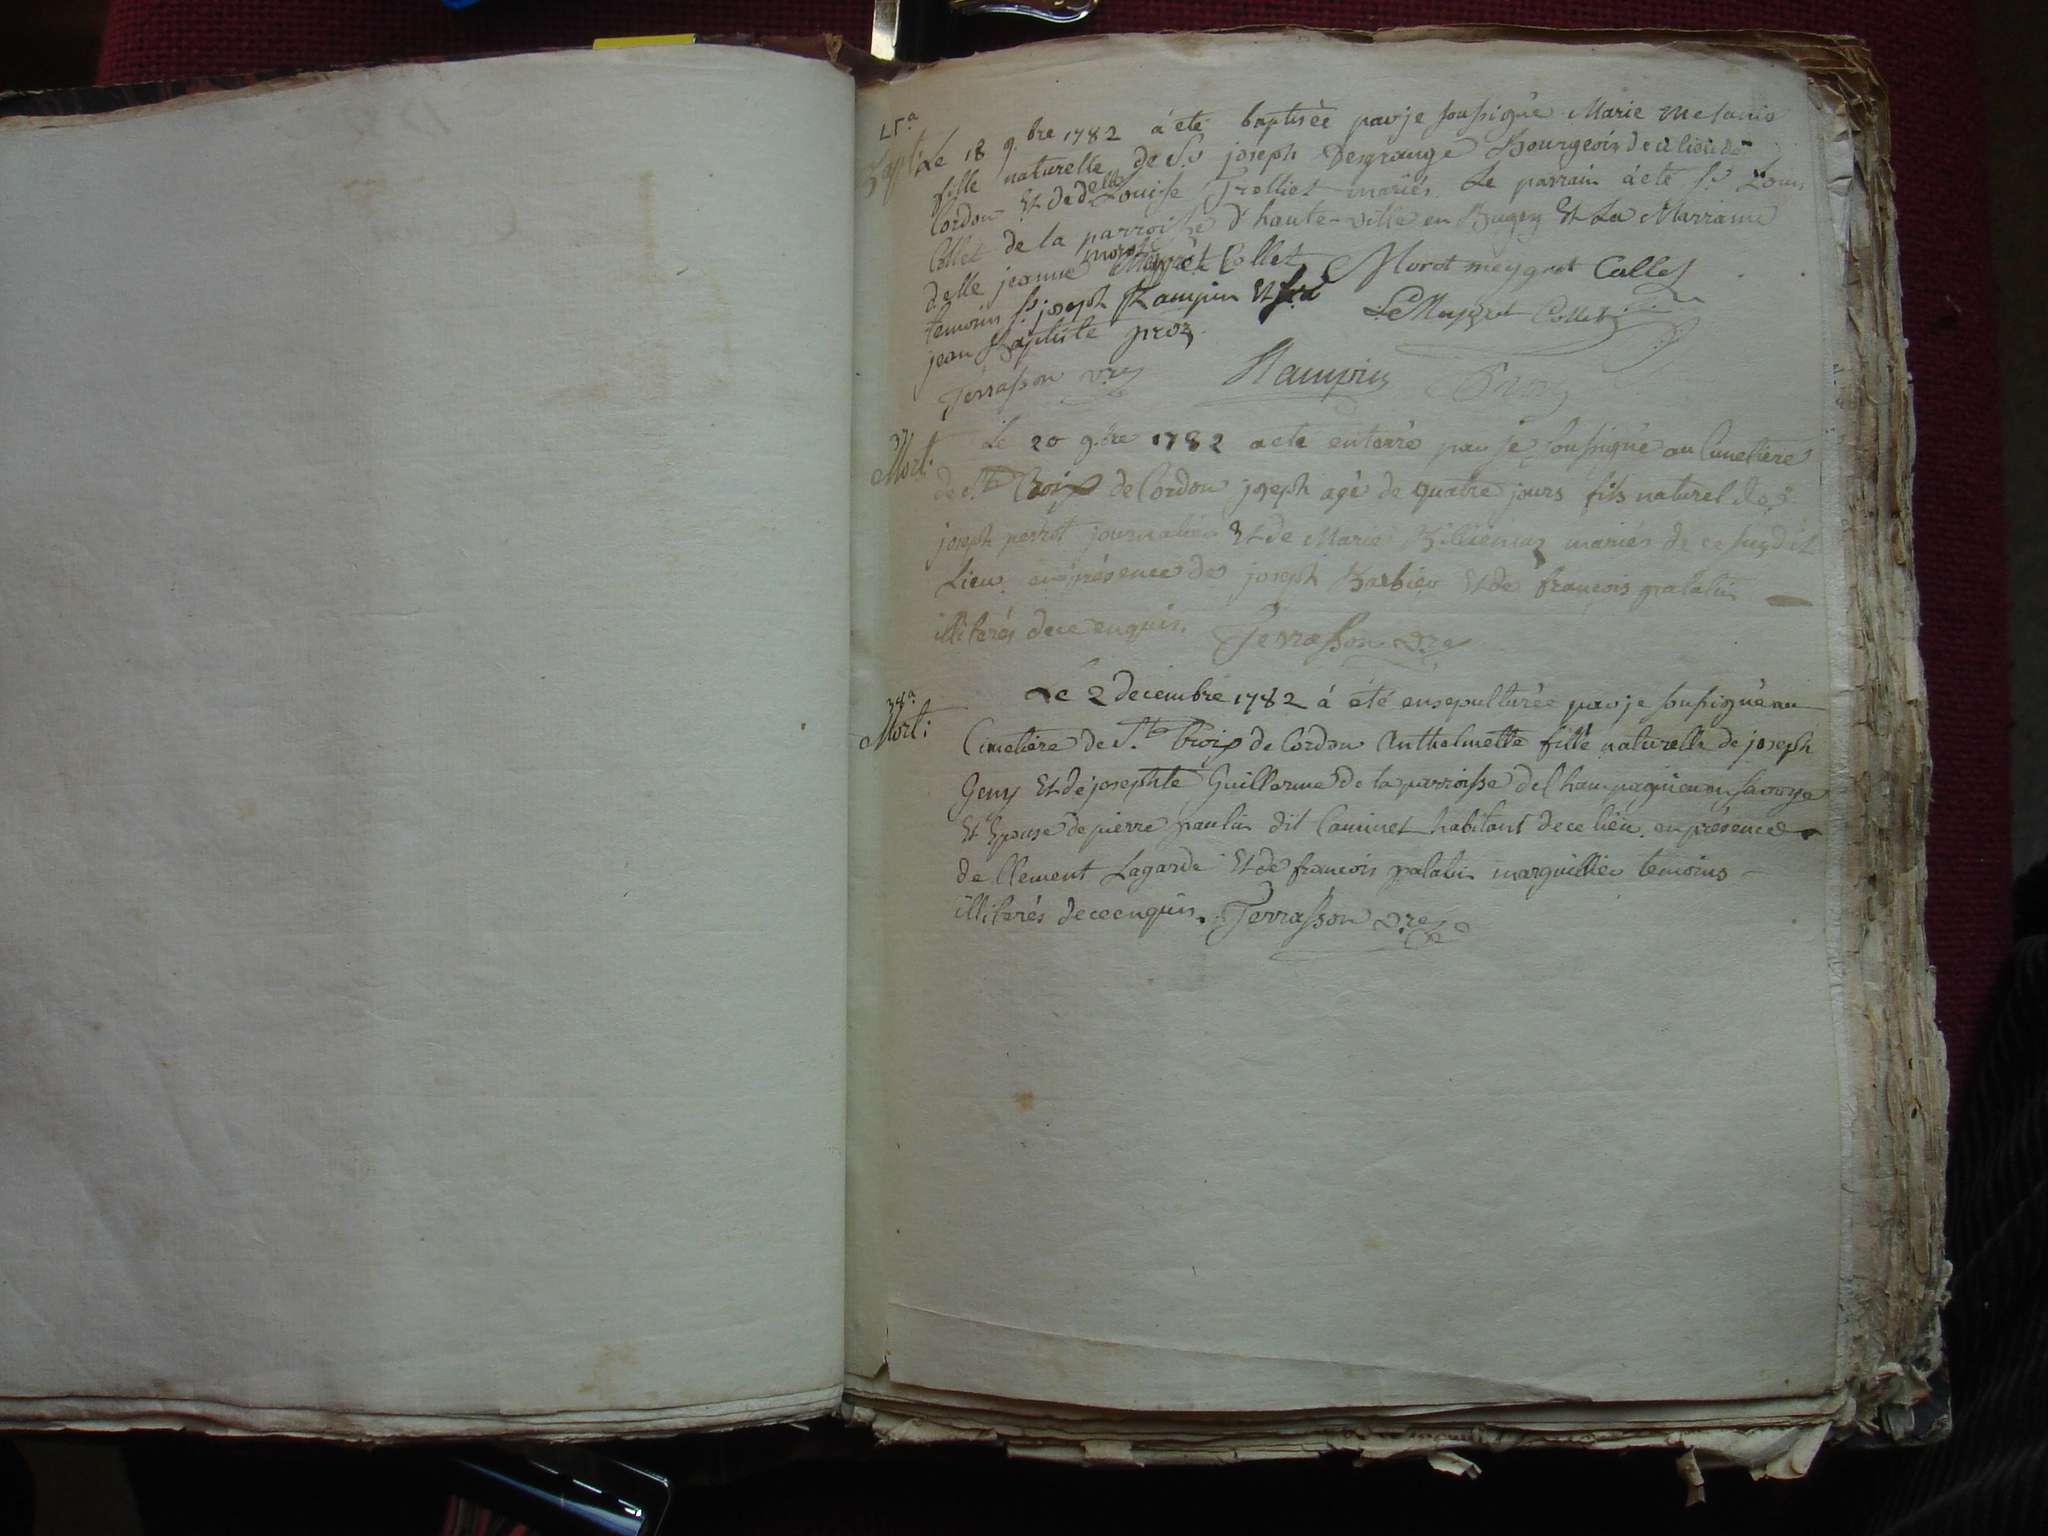 Bapt: Le 18 9.bre 1782 á eté baptisée par je soussigné Marie Melanie
fille naturelle de S.r joseph Desgrange Bourgeois de ce lieu de
Cordon Et de delle Louise Trolliet mariés. Le parrain á eté S.r Louis
Collet de la parroisse d'haute-ville en Bugey Et La Marraine
delle jeanne morot Meygret Collet
temoins S.r joseph Rampin Et
jean Baptiste proz
Morot meygret Collet
Meygret Collet
Terrasson v.re Rampin Proz
37
Mort: Le 20 9.bre 1782 a eté enterré par je soussigné au Cimetière
de S.te Croix de Cordon joseph agé de quatre jours fils naturel de
joseph perrot journalier Et de Marie Billiemaz mariés de ce susdit
Lieu en présence de joseph Barbier Et de françois palatin
illiterés de ce enquis. Terrasson v.re
38.a
Mort: Le 2 decembre 1782 á été ensepulturée par je soussigné au
Cimetière de S.te Croix de Cordon Anthelmette fille naturelle de joseph
Geny Et de josephte Guillerme de la parroisse de Champagnieu en Savoye
Et Epouse de pierre paulin dit Caminet habitant de ce lieu. en présence
de Clement Lagarde Et de francois palatin marguillier temoins
illiterés de ce enquis. Terrasson v.re